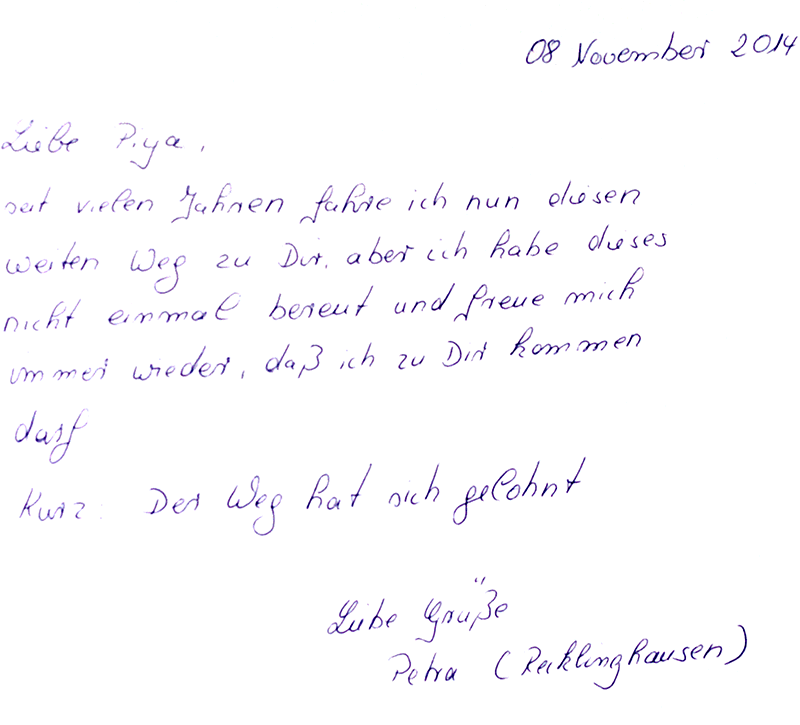 08 November 2014
Liebe Piya,
seit vielen Jahren fahre ich nun diesen
weiten Weg zu Dir, aber ich habe dieses
nicht einmal bereut und freue mich
immer wieder, daß ich zu Dir kommen
darf
Kurz: Der Weg hat sich gelohnt
Liebe Grüße
Petra (Recklinghausen)